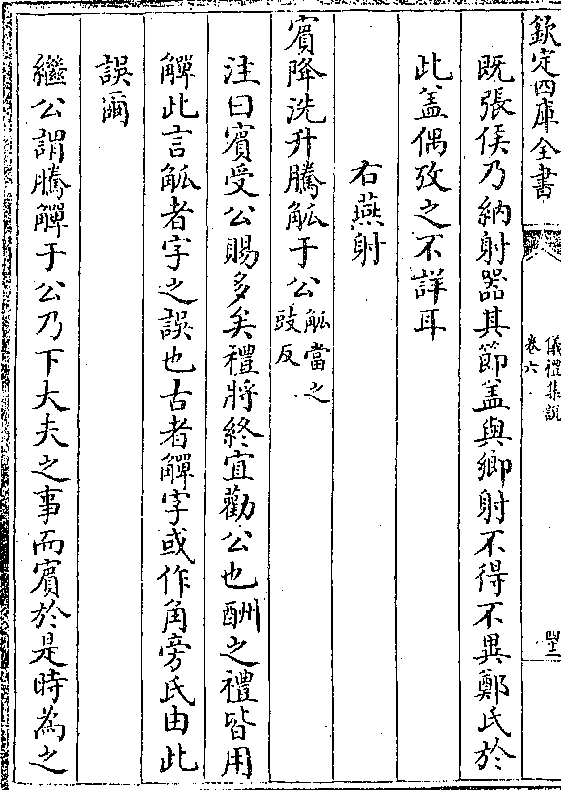 欽定四庫全書
儀禮集說
卷六
四十二
既張侯乃納射器其節蓋與鄉射不得不異鄭氏於
此蓋偶攷之不詳耳
右燕射
賓降洗升騰觚于公觚當之豉反
注曰賓受公賜多矣禮將終宜勸公也酬之禮皆用
觶此言觚者字之誤也古者觶字或作角旁氏由此
誤爾
繼公謂騰觶于公乃下大夫之事而賓於是時為之